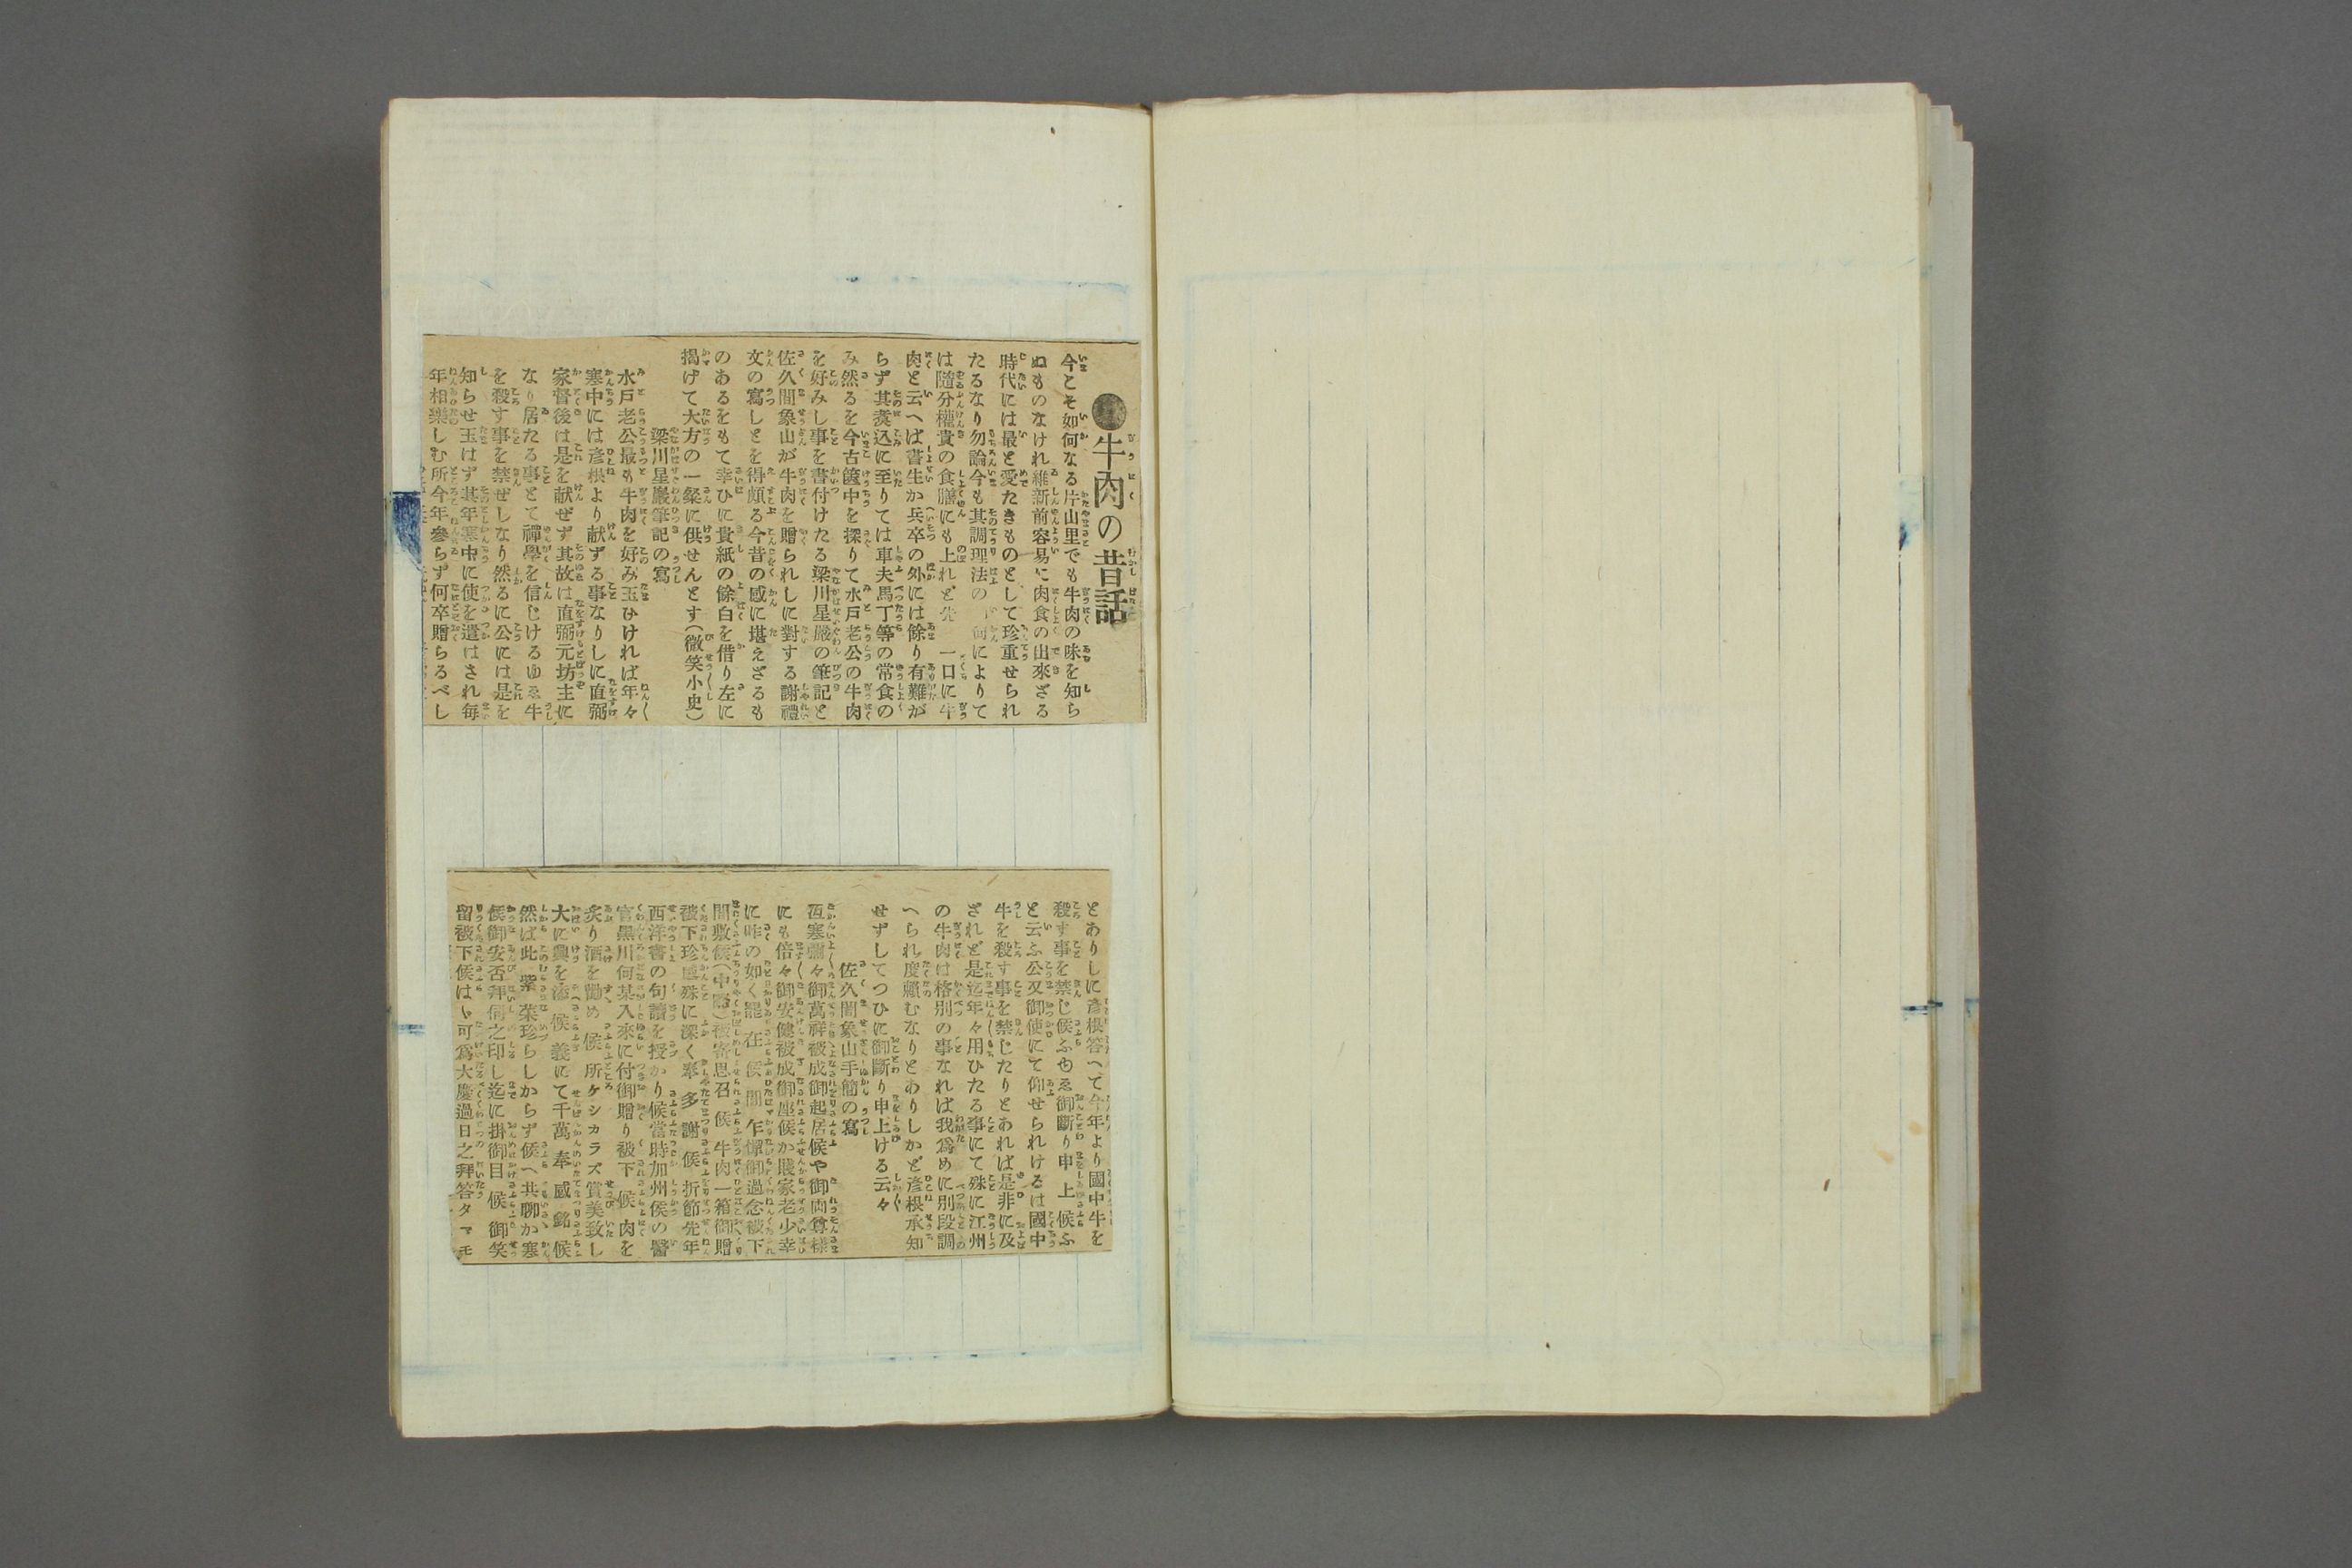 ●牛肉の昔話
今こそ如何なる片山里でも牛肉の味を知ら
ぬものなけれ維新前容易に肉食の出來ざる
時代には最と愛たきものとして珍重せられ
たるなり勿論今も其調理法の 何によりて
は隨分權貴の食膳にも上れど 一口に牛
肉と云へば書生か兵卒の外には餘り有難が
らず其煑込に至りては車夫馬丁等の常食の
み然るを今古篋中を探りて水戸老公の牛肉
を好みし事を書付けたる梁川星巖の筆記と
佐久間象山が牛肉を贈られしに對する謝禮
文の寫しとを得頗る今昔の感に堪えざるも
のあるをもて幸ひに貴紙の餘白を借り左に
揭げて大方の一粲に供せんとす(微笑小史)
梁川星巖筆記の寫
水戸老公最も牛肉を好み玉ひければ年々
寒中には彦根より献ずる事なりしに直弼
家督後は是を献ぜず其故は直弼元坊主に
なり居たる事とて禪學を信じけるゆゑ牛
を殺す事を禁ぜしなり然るに公には是を
知らせ玉はず其年寒中に使を遣はされ毎
年相樂しむ所今年參らず何卒贈らるべし
とありしに彦根答へて今年より國中牛を
殺す事を禁じ候ふゆゑ御斷り申上候ふ
と云ふ公又御使にて仰せられけるは國中
牛を殺す事を禁じたりとあれば是非に及
ざれど是迄年々用ひたる事にて殊に江州
の牛肉は格別の事なれば我爲めに別段調
へられ度賴むなりとありしかど彦根承知
せずしてつひに御斷り申上ける云々
佐久間象山手簡の寫
沍寒彌々御萬祥被成御起居候や御両尊樣
にも倍々御安健被成御座候か賤家老少幸
に昨の如く罷在候間乍憚御過念被下
間敷候(中略)被寄思召候牛肉一箱御贈
被下珍感殊に深く奉多謝候折節先年
西洋書の句讀を授かり候當時加州侯の醫
官黑川何某入來に付御贈り被下候肉を
炙り酒を勸め候所ケシカラズ賞美致し
大に興を添候義にて千萬奉感銘候
然ば此紫菜珍らしからず候へ共聊か寒
候御安否拜伺之印し迄に掛御目候御笑
留被下候はゞ可爲大慶過日之拜答タマモ